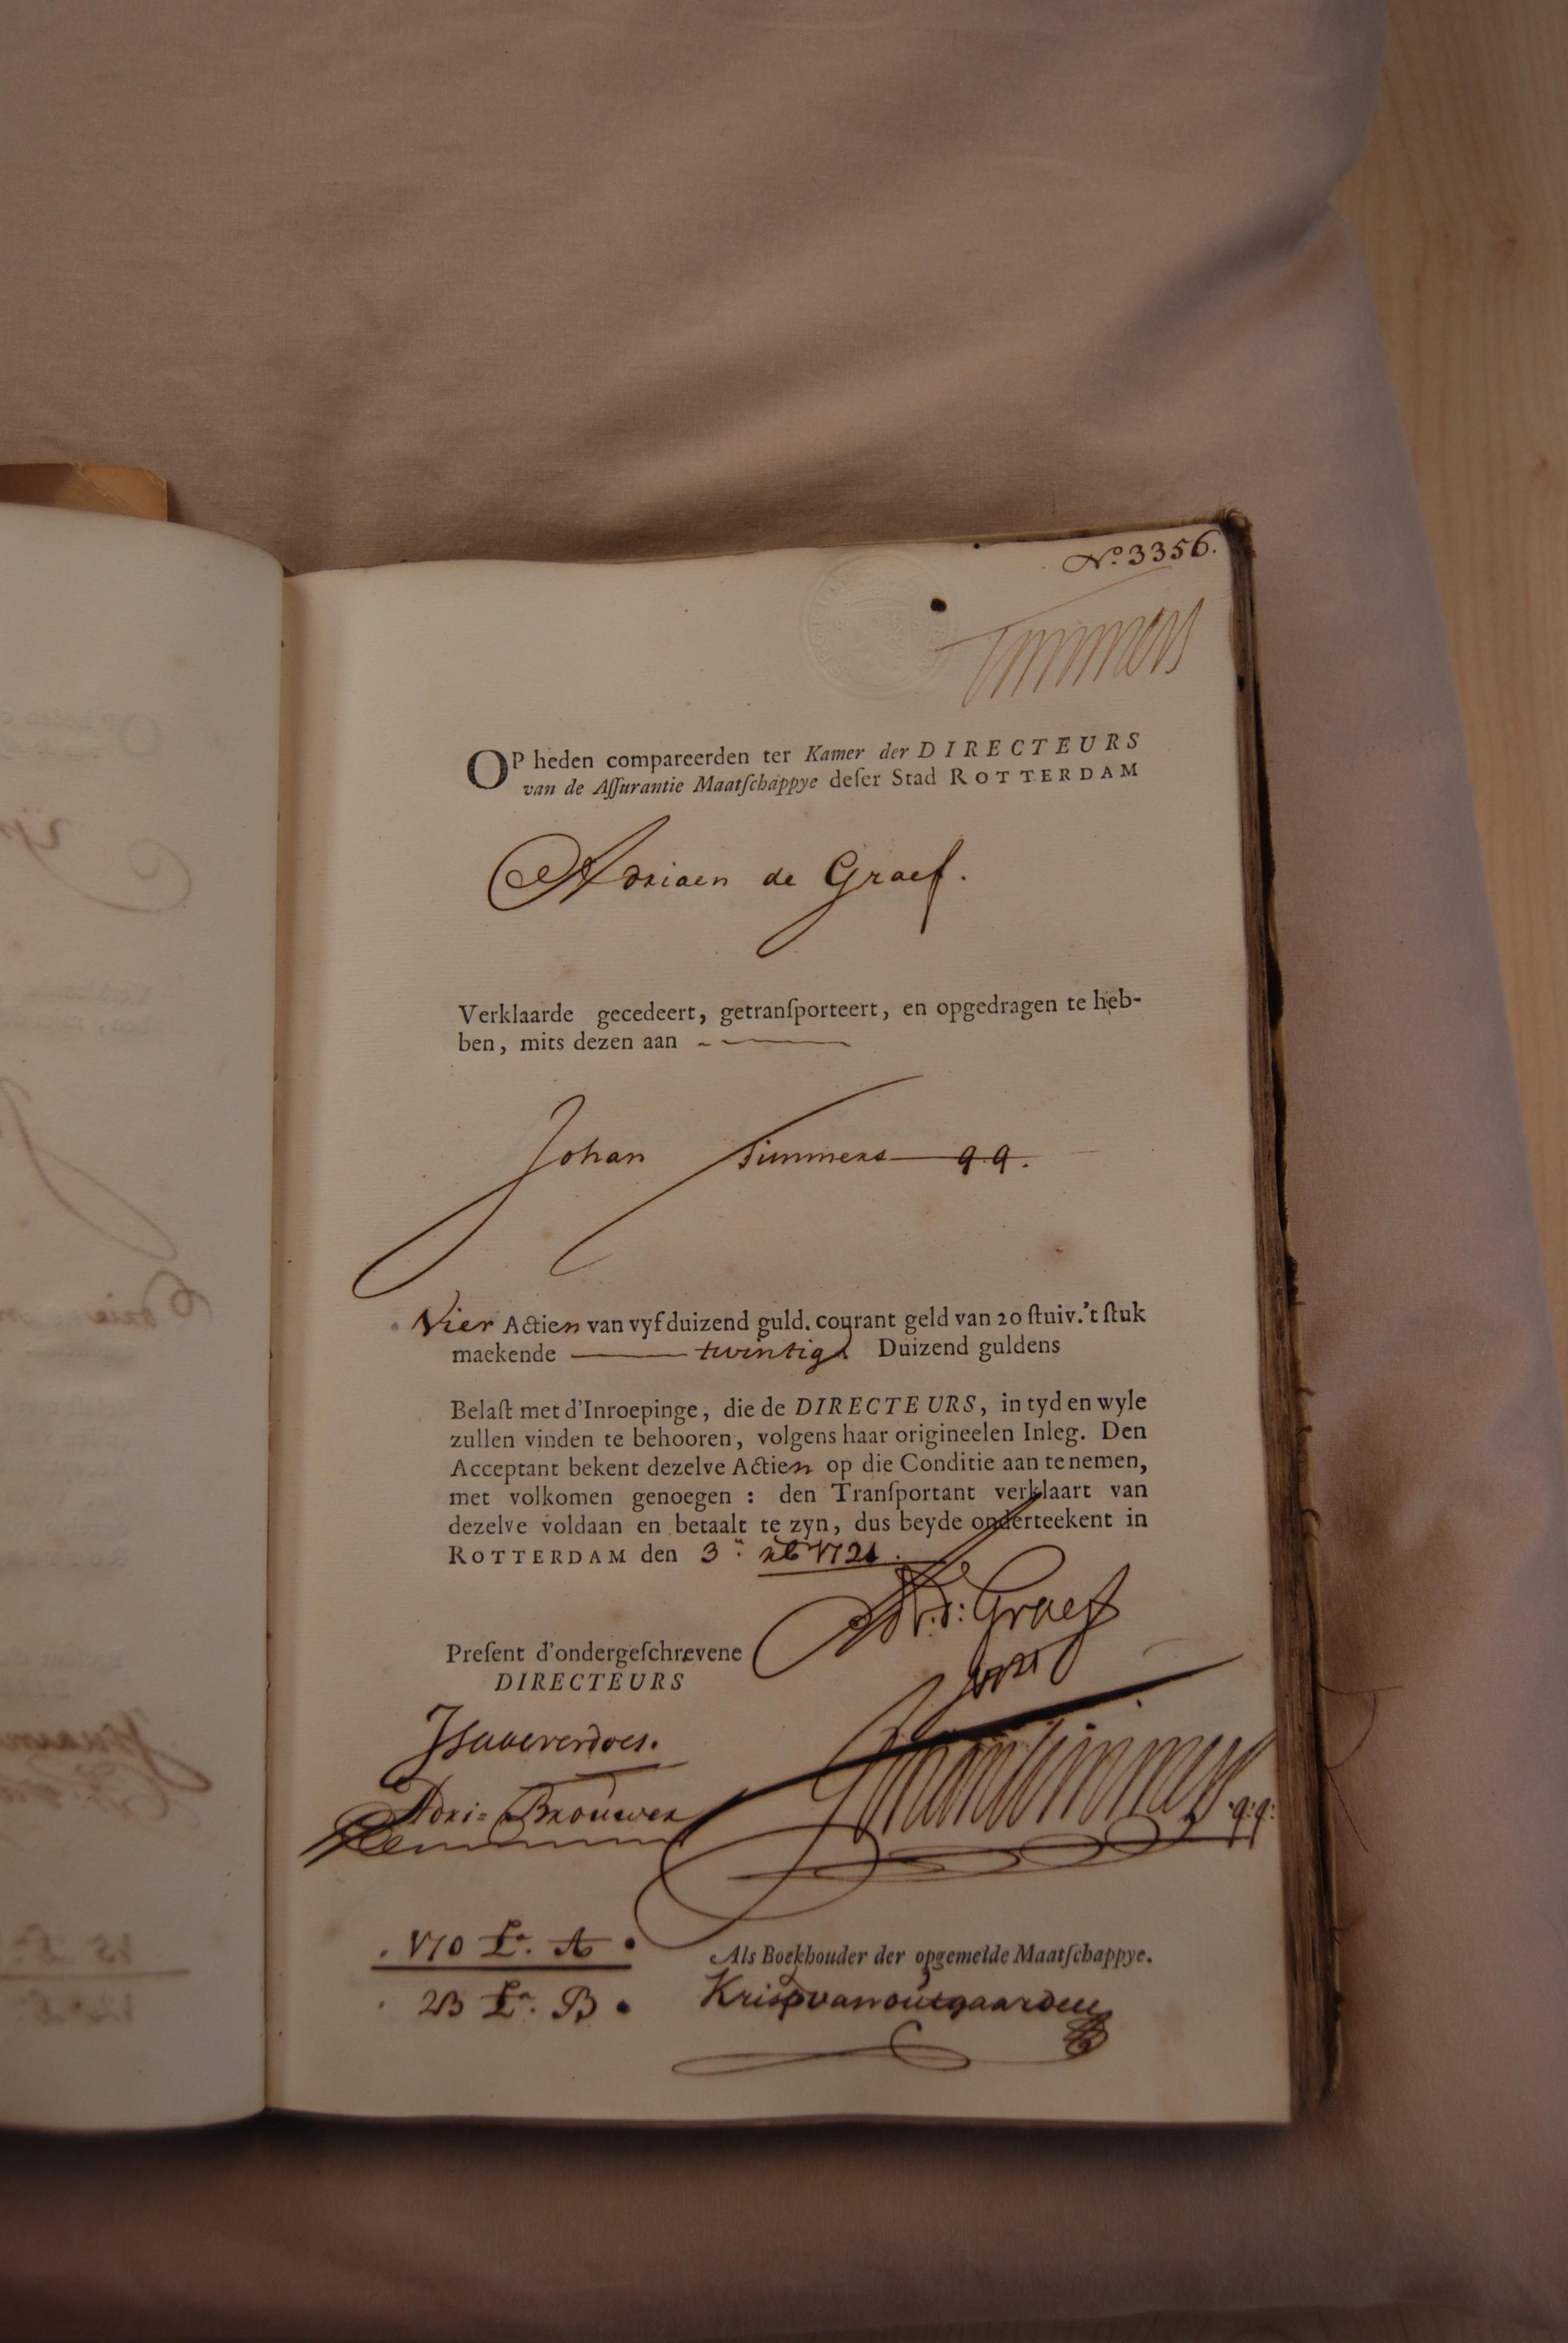 No. 3356.
Timmers
OP heden compareerden ter Kamer der DIRECTEURS
van de Aſſurantie Maatſchappye deſer Stad ROTTERDAM
Adriaen de Graef.
Verklaarde gecedeert, getranſporteert, en opgedragen te heb-
ben, mits dezen aan
Johan Timmers qq.
Vier Actien van vyf duizend guld. courant geld van 20 ſtuiv. 't ſtuk
maekende twintig. Duizend guldens
Belaſt met d'Inroepinge, die de DIRECTEURS, in tyd en wyle
zullen vinden te behooren, volgens haar origineelen Inleg. Den
Acceptant bekent dezelve Actien op die Conditie aan te nemen,
met volkomen genoegen : den Tranſportant verklaart van
dezelve voldaan en betaalt te zyn, dus beyde onderteekent in
ROTTERDAM den 3
Adr. d: Graef
Preſent d'ondergeſchrevene
DIRECTEURS
Adri= Brouwer
Johan Timmers q:q:
170 La. A
Als Boekhouder der opgemelde Maatſchappye.
23 La. B